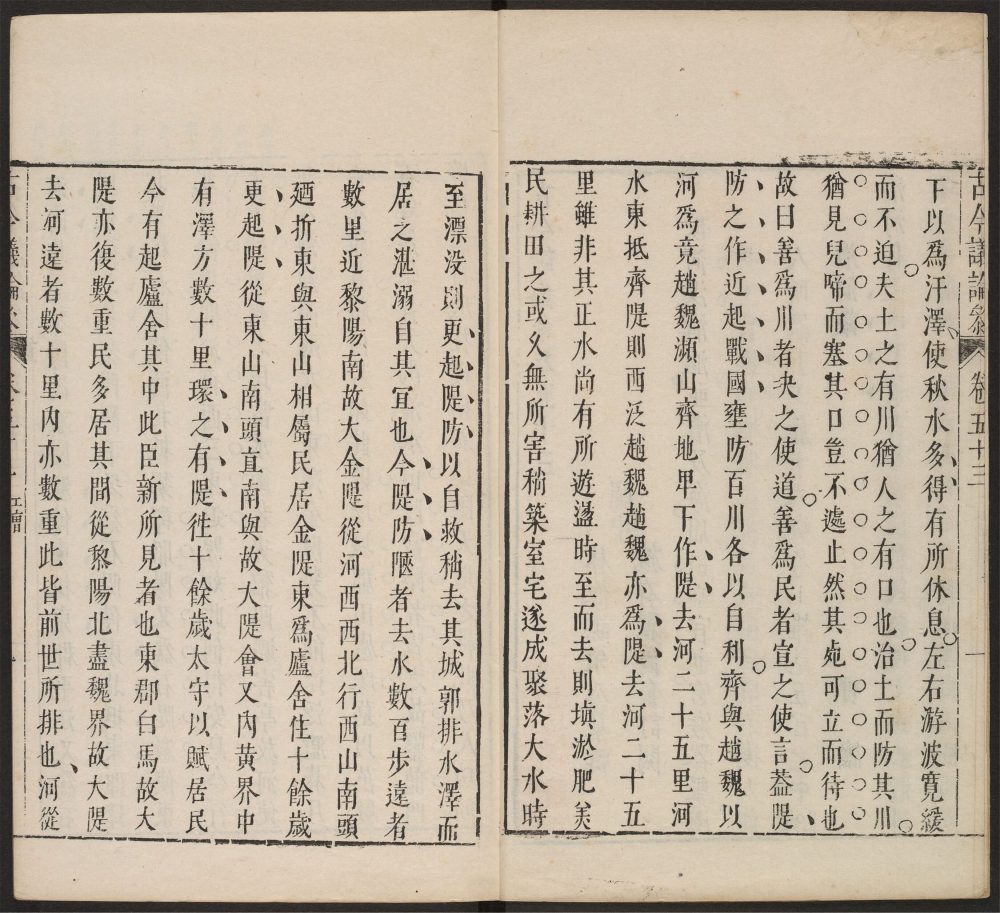 古今議論參 卷五十三 一
下以爲汙澤使秋水多得有所休息左右游波寬緩
而不迫夫土之有川猶人之有口也治土而防其川
猶見兒啼而塞其口豈不遽止然其𣦸可立而待也
故曰善爲川者决之使道善爲民者宣之使言葢隄
防之作近起戰國壅防百川各以自利齊與趙魏以
河爲竟趙魏瀕山齊地𤰞下作隄去河二十五里河
水東抵齊隄則西泛趙魏趙魏亦爲隄去河二十五
里雖非其正水尚有所遊盪時至而去則塡淤肥美
民耕田之或久無所害稍築室宅遂成聚落大水時
至漂没則更起隄防以自救稍去其城郭排水澤而
居之湛溺自其冝也今隄防陿者去水數百步遠者
數里近黎陽南故大金隄從河西西北行西山南頭
廼折東與東山相屬民居金隄東爲廬舍住十餘歲
更起隄從東山南頭直南與故大隄會又內黃界中
有澤方數十里環之有隄徃十餘歲太守以賦居民
今有起廬舍其中此臣新所見者也東郡白馬故大
隄亦復數重民多居其間從黎陽北盡魏界故大隄
去河遠者數十里內亦數重此皆前世所排也河從
古今議論參